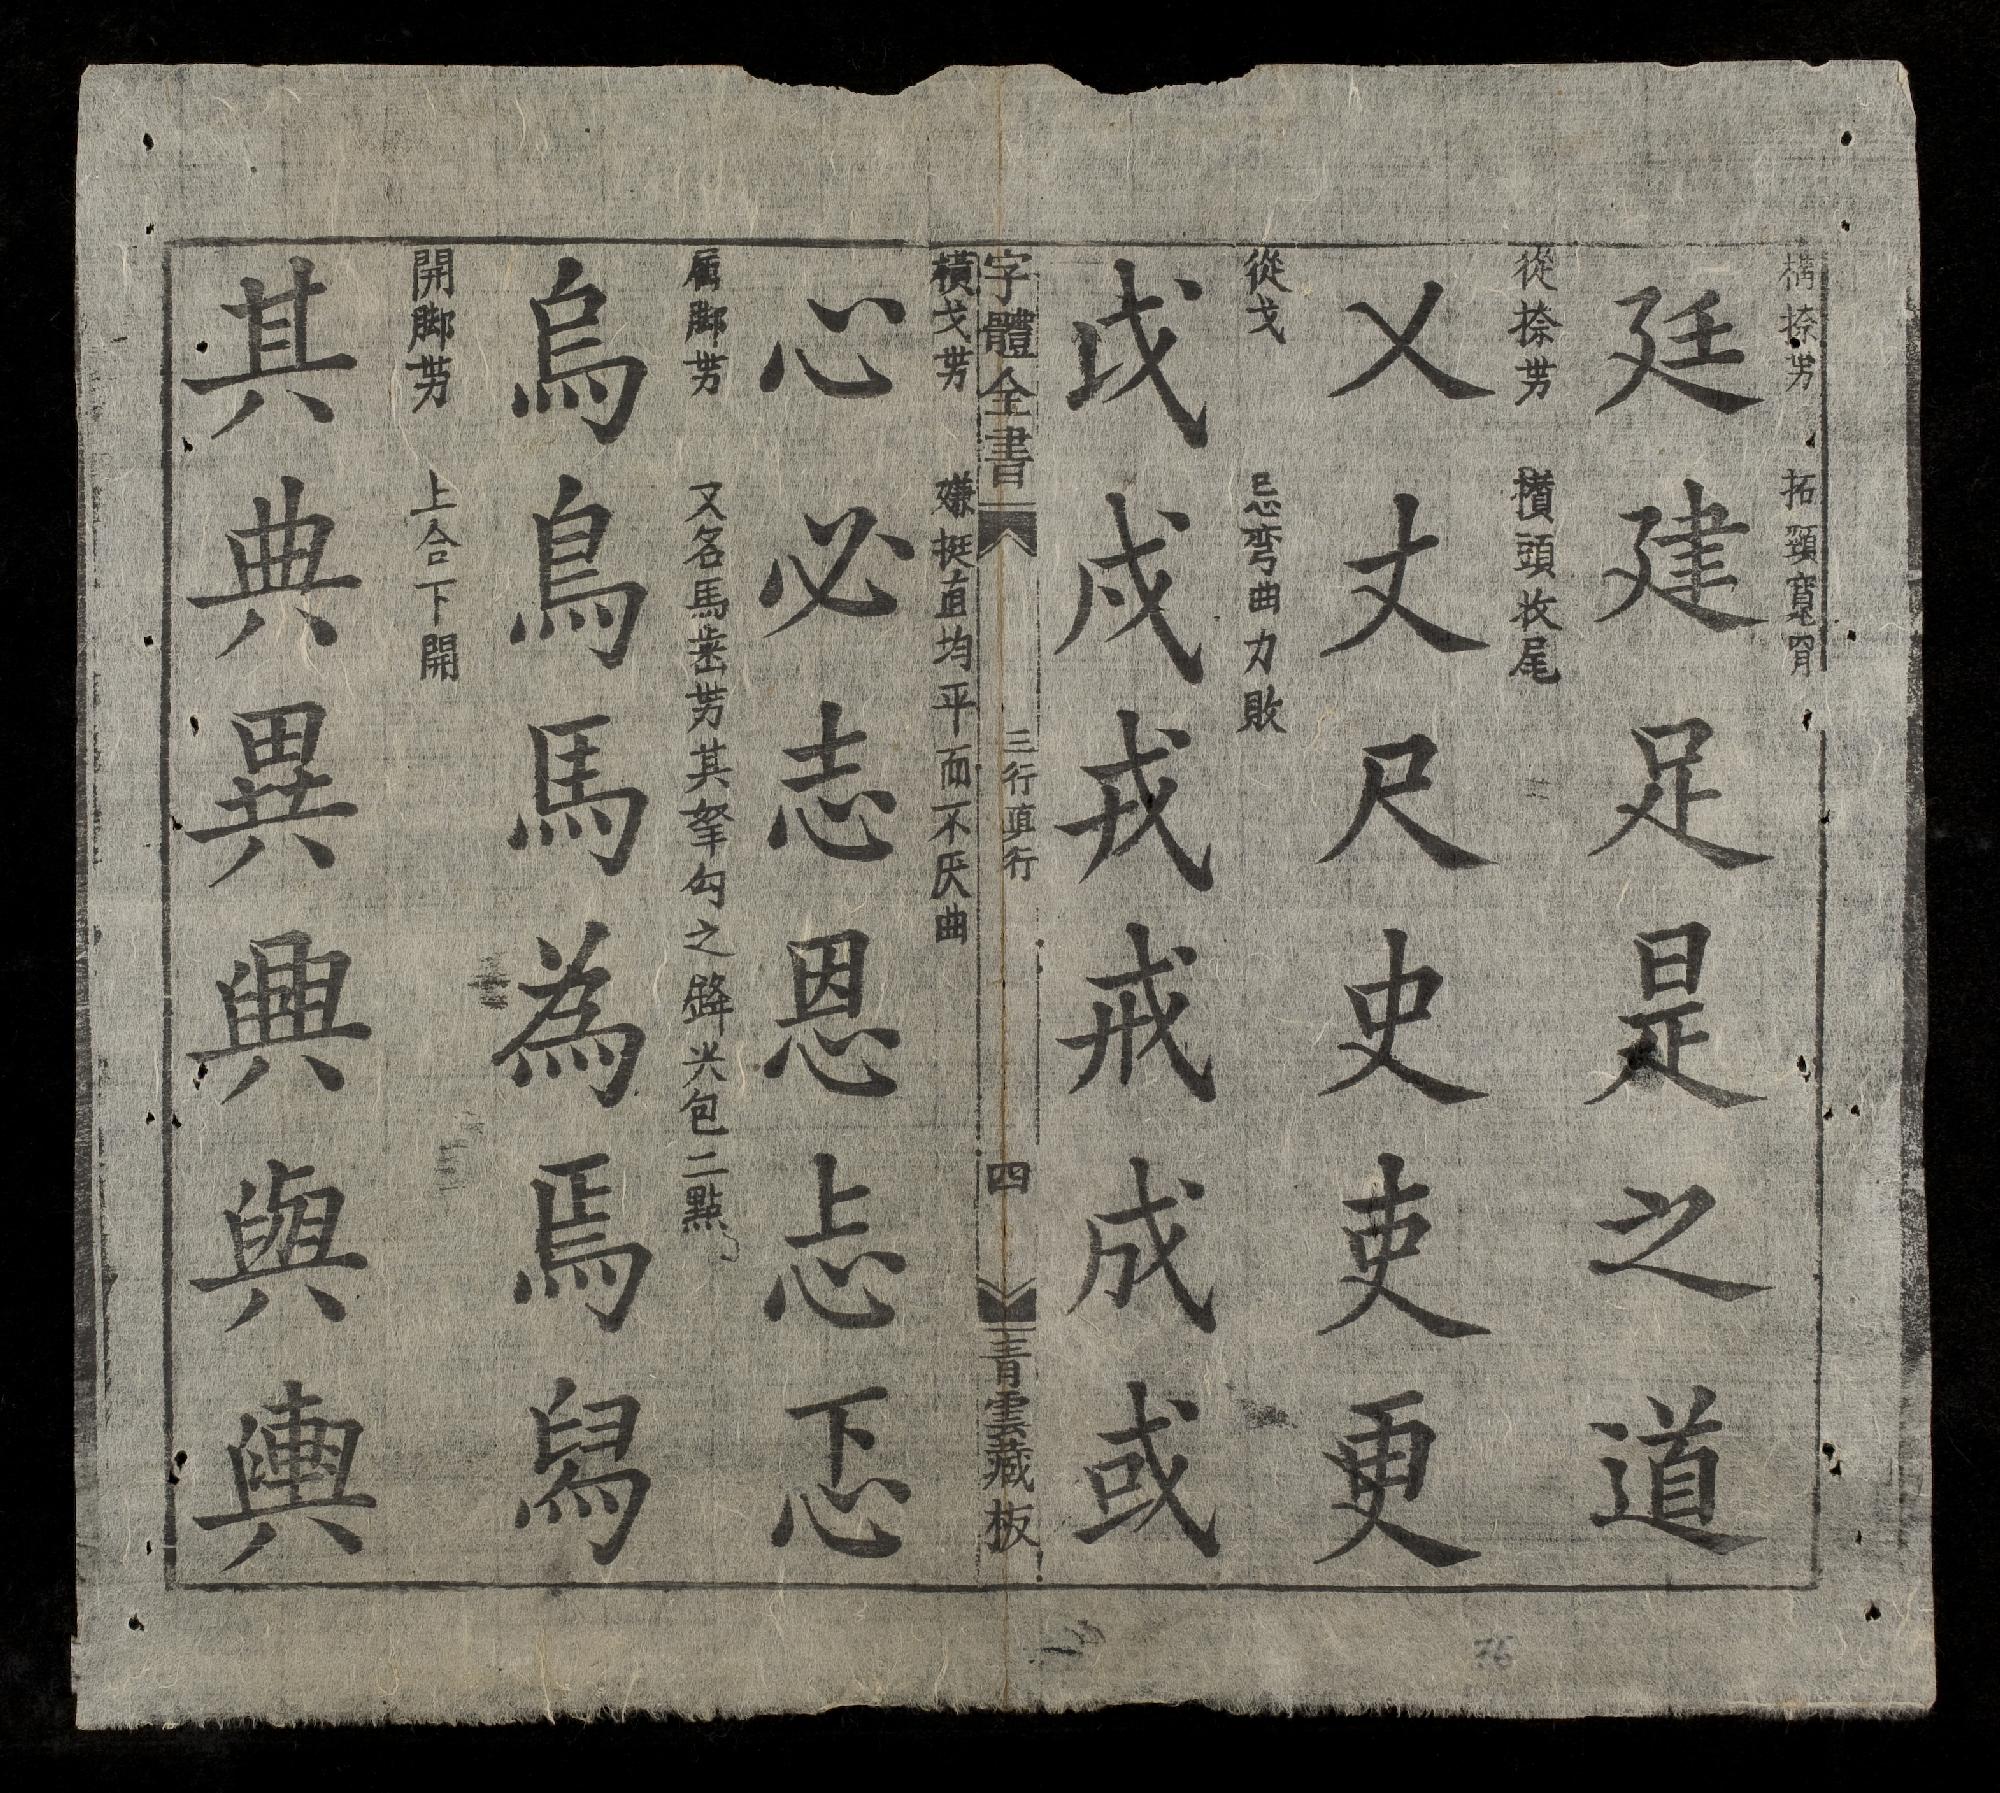 橫捺势 拓頸寬胷
廷建足是之道
從捺势 攢頭收尾
乂丈尺史吏更
從戈 忌弯曲力敗
戉戍戎戒成或
字體全書 三行真行 四 青雲藏板
橫戈势 嫌挺直均平而不厌曲
心必志恩忐忑
鴈脚势 又名馬齿势其拏勾之鋒尖包二點
烏鳥馬為焉舄
開脚势 上合下開
其典異興與輿
76